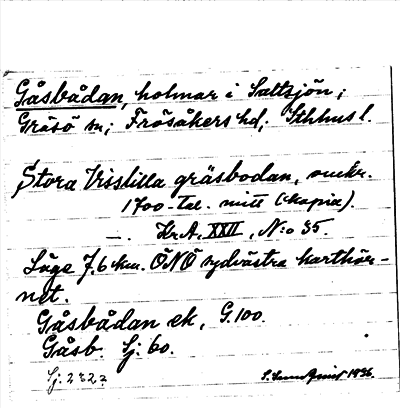 Gåsbådan, holmar i Saltsjön;
Gräsö sn; Frösåkers hd; Sthlms l.
Stora Visslilla gräsbodan, omkr.
1700-tal. mitt (kopia).
—. Kr.A. XXII, N:o 35.
Läge 7,6 km. ÖNÖ sydvästra karthör-
net.
Gåsbådan ek, G.100.
Gåsb. Sj. 60.
Sj. 2322
1936.